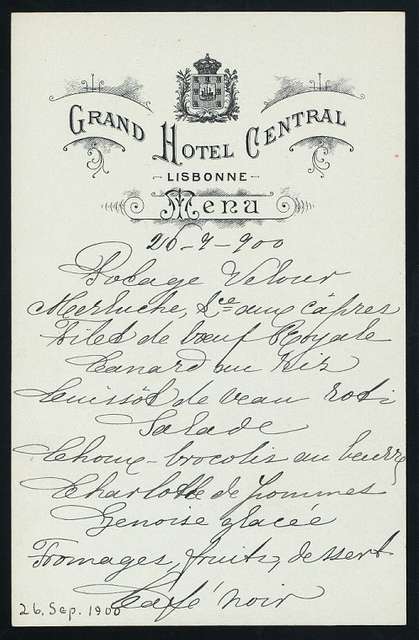 GRAND HOTEL CENTRAL
LISBONNE
Menu
26-9-900
Potage Velour
Merluche, Sce aux câpres
Filet de bœuf Royale
Canard au Riz
Cuissôt de veau roti
Salade
Choux-brocolis au beurre
Charlotte de pommes
Genoise glacée
Fromages, fruits, dessert
Café noir
26. Sep. 1900